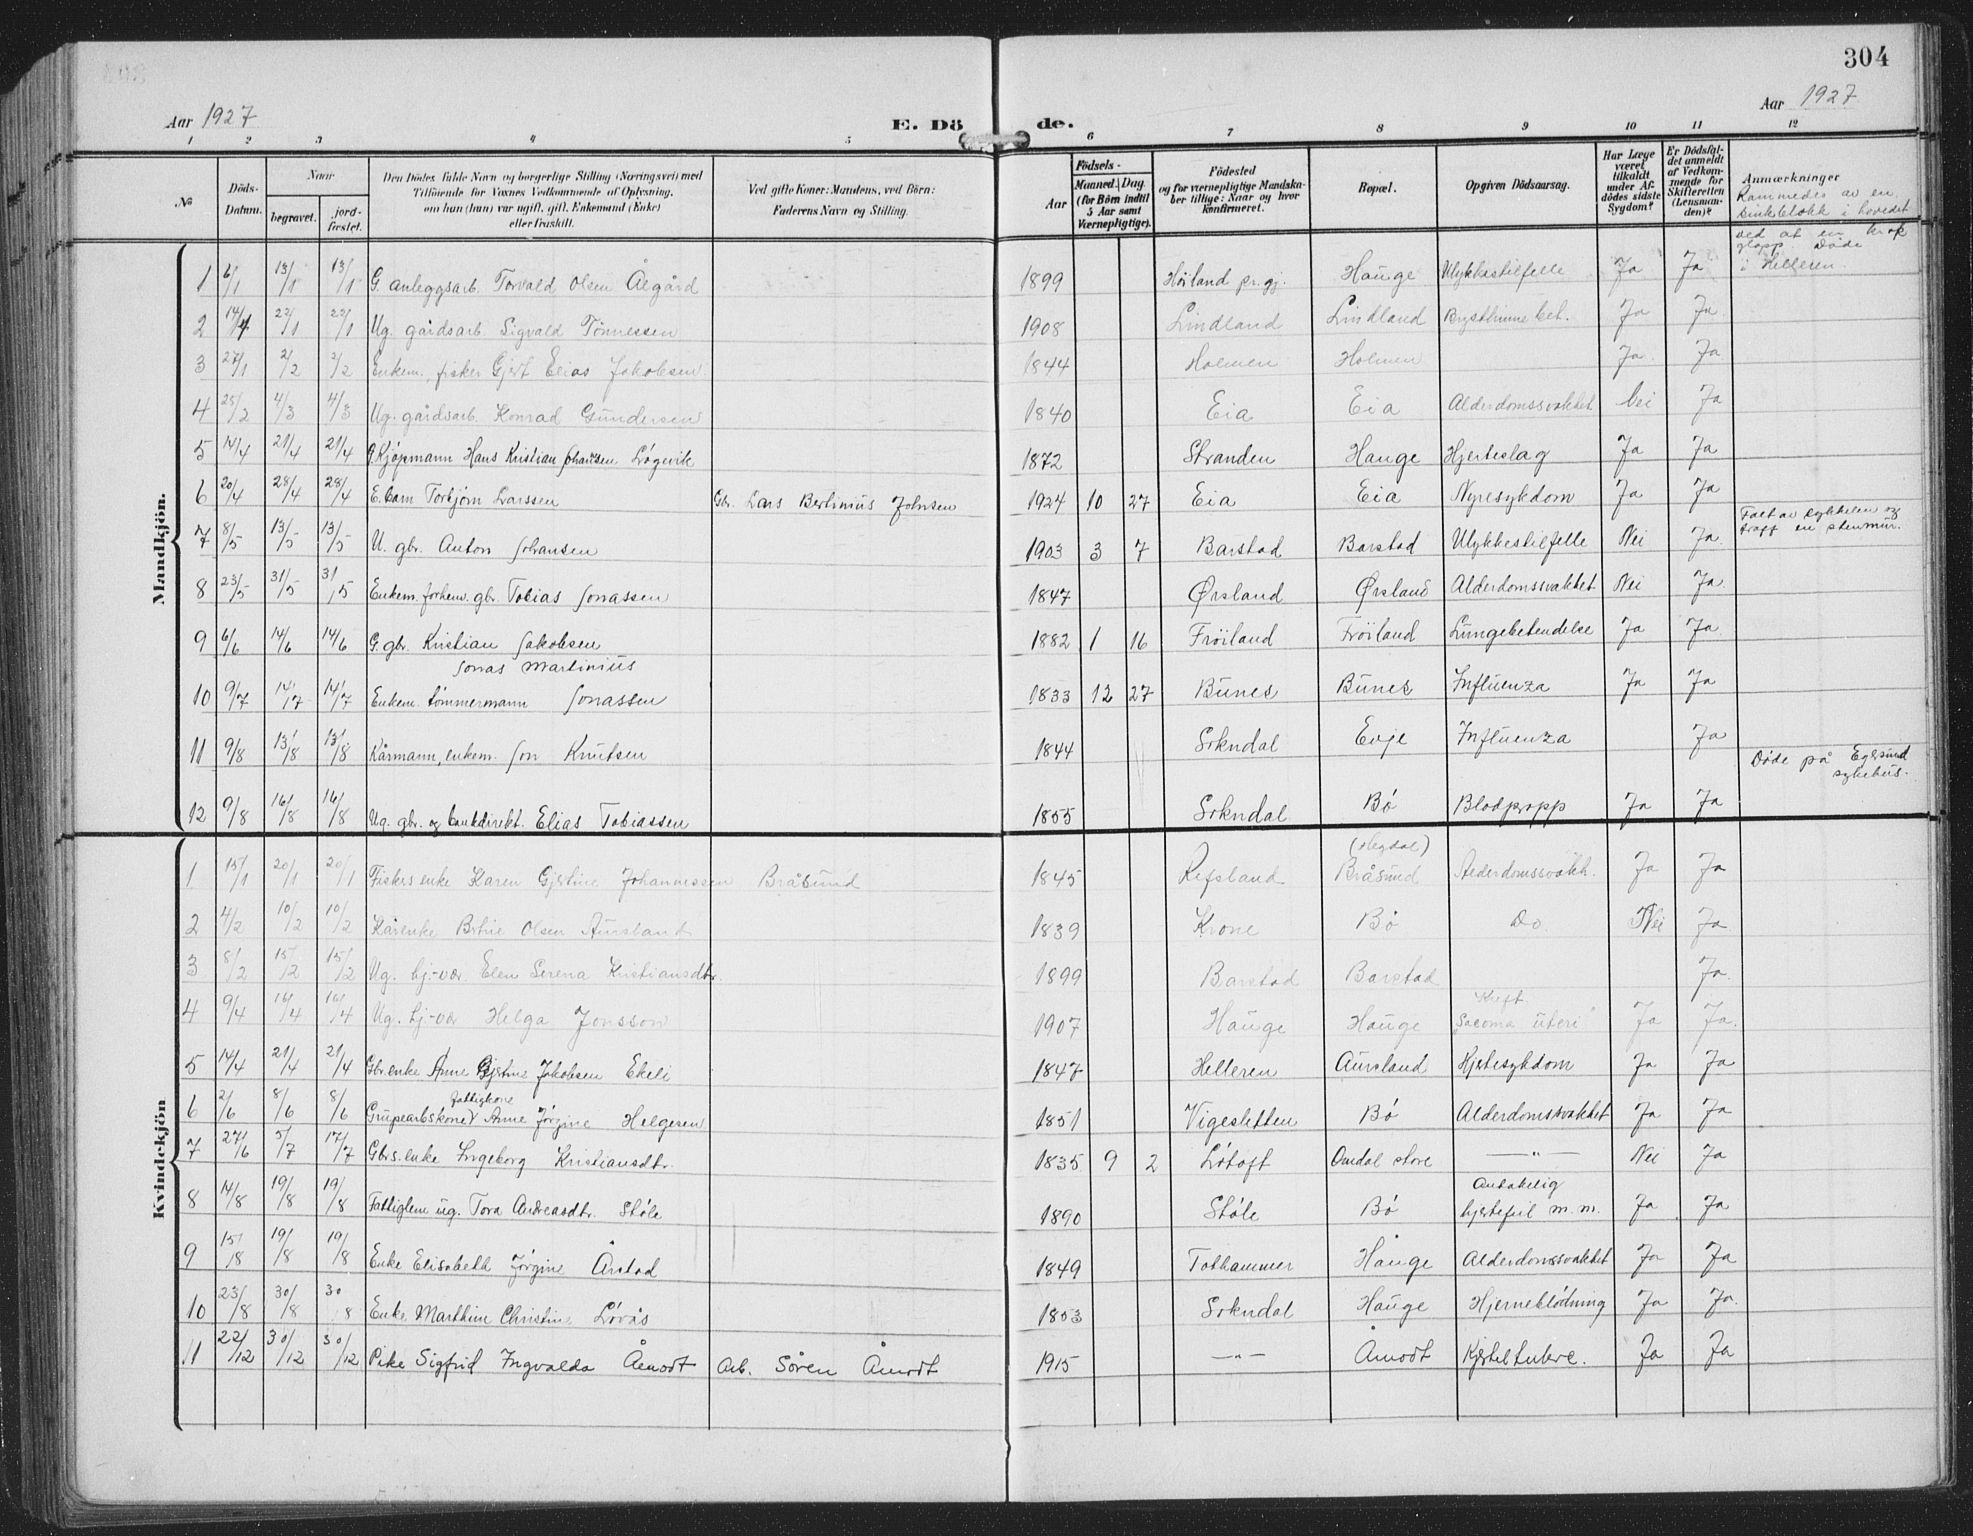 304
Aar 1927 E. Dö de. Aar 1927
1 2 3 4 5 6 7 8 9 10 11 12
No
Döds-Datum.
Naar
begravet.
jord-fæstet.
Den Dödes fulde Navn og borgerlige Stilling (Næringsvei) med
Tilföiende for Voxnes Vedkommende af Oplysning,
om han (hun) var ugift, gift, Enkemand (Enke)
eller fraskilt.
Ved gifte Koner: Mandens, ved Börn:
Faderens Navn og Stilling.
Födsels-
Aar
Maaned. Dag.
(for Börn indtil
5 Aar samt
Værnepligtige).
Födested
og for værnepligtige Mandska-
ber tillige: Naar og hvor
konfirmeret.
Bopæl.
Opgiven Dödsaarsag.
Har Læge
været
tilkaldt
under Af-
dödes sidste
Sygdom?
Er Dödsfal-
det anmeldt
af Vedkom-
mende for
Skifteretten
(Lensman-
den)?
Anmærkninger
Rammedes av en
blokk i hovedet
ved at en krok
glapp. Døde
i Helleren.
Mandkjön.
1 6/1 13/1 13/1 G. anleggsarb. Torvald Olsen Ålgård 1899 Høiland pr.gj. Hauge Ulykkestilfelle Ja Ja
2 14/1 22/1 22/1 Ug. gårdsarb. Sigvald Tønnessen 1908 Lindland Lindland Brysthinnebet. Ja Ja
3 27/1 2/2 2/2 Enkem., fisker Gjert Elias Jakobsen 1844 Holmen Holmen Ja Ja
4 25/2 4/3 4/3 Ug. gårdsarb. Konrad Gundersen 1840 Eia Eia Alderdomssvakhet Nei Ja
5 14/4 21/4 21/4 G. Kjøpmann Hans Kristian Johansen Løgevik 1872 Stranden Hauge Hjerteslag Ja Ja
6 20/4 28/4 28/4 E. barn Torbjørn Larssen Gbr. Lars Bertinius Johnsen 1924 10 27 Eia Eia Nyresykdom Ja Ja
7 8/5 13/5 13/5 U. gbr. Anton Johansen 1903 3 7 Barstad Barstad Ulykkestilfelle Nei Ja Falt av sykkelen og
traff en stenmur.
8 23/5 31/5 31/5 Enkem. forhenv. gbr. Tobias Jonassen 1847 Ørsland Ørsland Alderdomssvakhet Nei Ja
9 6/6 14/6 14/6 G. gbr. Kristian Jakobsen 1882 1 16 Frøiland Frøiland Lungebetendelse Ja Ja
Jonas Martinius
10 9/7 14/7 14/7 Enkem. tømmermann Jonassen 1833 12 27 Bunes Bunes Influenza Ja Ja
11 9/8 13/8 13/8 Kårmann, enkem. Jon Knutsen 1844 Sokndal Evje Influenza Ja
Døde på Egersund
sykehus.
12 9/8 16/8 16/8 Ug. gbr. og bankdirekt. Elias Tobiassen 1855 Sokndal Bø Blodpropp Ja Ja
Kvindekjön
(Regdal)
1 15/1 20/1 20/1 Fiskers enke Karen Gjertine Johannessen Bråsund 1845 Refsland Bråsund Alderdomssvakh. Ja Ja
2 4/2 10/2 10/2 Kårenke Brtine Olsen Aursland 1839 Krone Bø Do Nei Ja
3 8/2 15/2 15/2 Ug. hj.-vær. Elen Serena Kristiansdtr. 1899 Barstad Barstad Ja
Kreft
4 9/4 16/4 16/4 Ug. hj-vær Helga Jonsson 1907 Hauge Hauge "Sacoma uteri" Ja Ja
5 14/4 21/4 21/4 Gbr.enke Anne Gjertine Jakobsen Ekeli 1847 Helleren Aursland Hjertesykdom Ja Ja
fattigkone
6 2/6 8/6 8/6 Grupearbskone Anne Jørgine Helgesen 1851 Vigesletten Bø Alderdomssvakhet Ja Ja
7 27/6 5/7 17/7 Gbrs. enke Ingeborg Kristiansdtr. 1835 9 2 Løtoft Omdal store — " — Nei Ja
Antakelig
8 14/8 19/8 19/8 Fattiglem ug. Tora Andreasdtr. Støle 1890 Støle Bø hjertefeil m. m. Ja Ja
9 15/8 19/8 19/8 Enke Elisabeth Jørgine Årstad 1849 Tothammer Hauge Alderdomssvakhet Ja Ja
10 23/8 30/8 30/8 Enke Marthine Christine Løvås 1853 Sokndal Hauge Hjerneblødning Ja Ja
11 22/12 30/12 30/12 Pike Sigfrid Ingvalda Åmodt Arb. Søren Åmodt 1915 — " — Åmodt Kjerteltuberc. Ja Ja